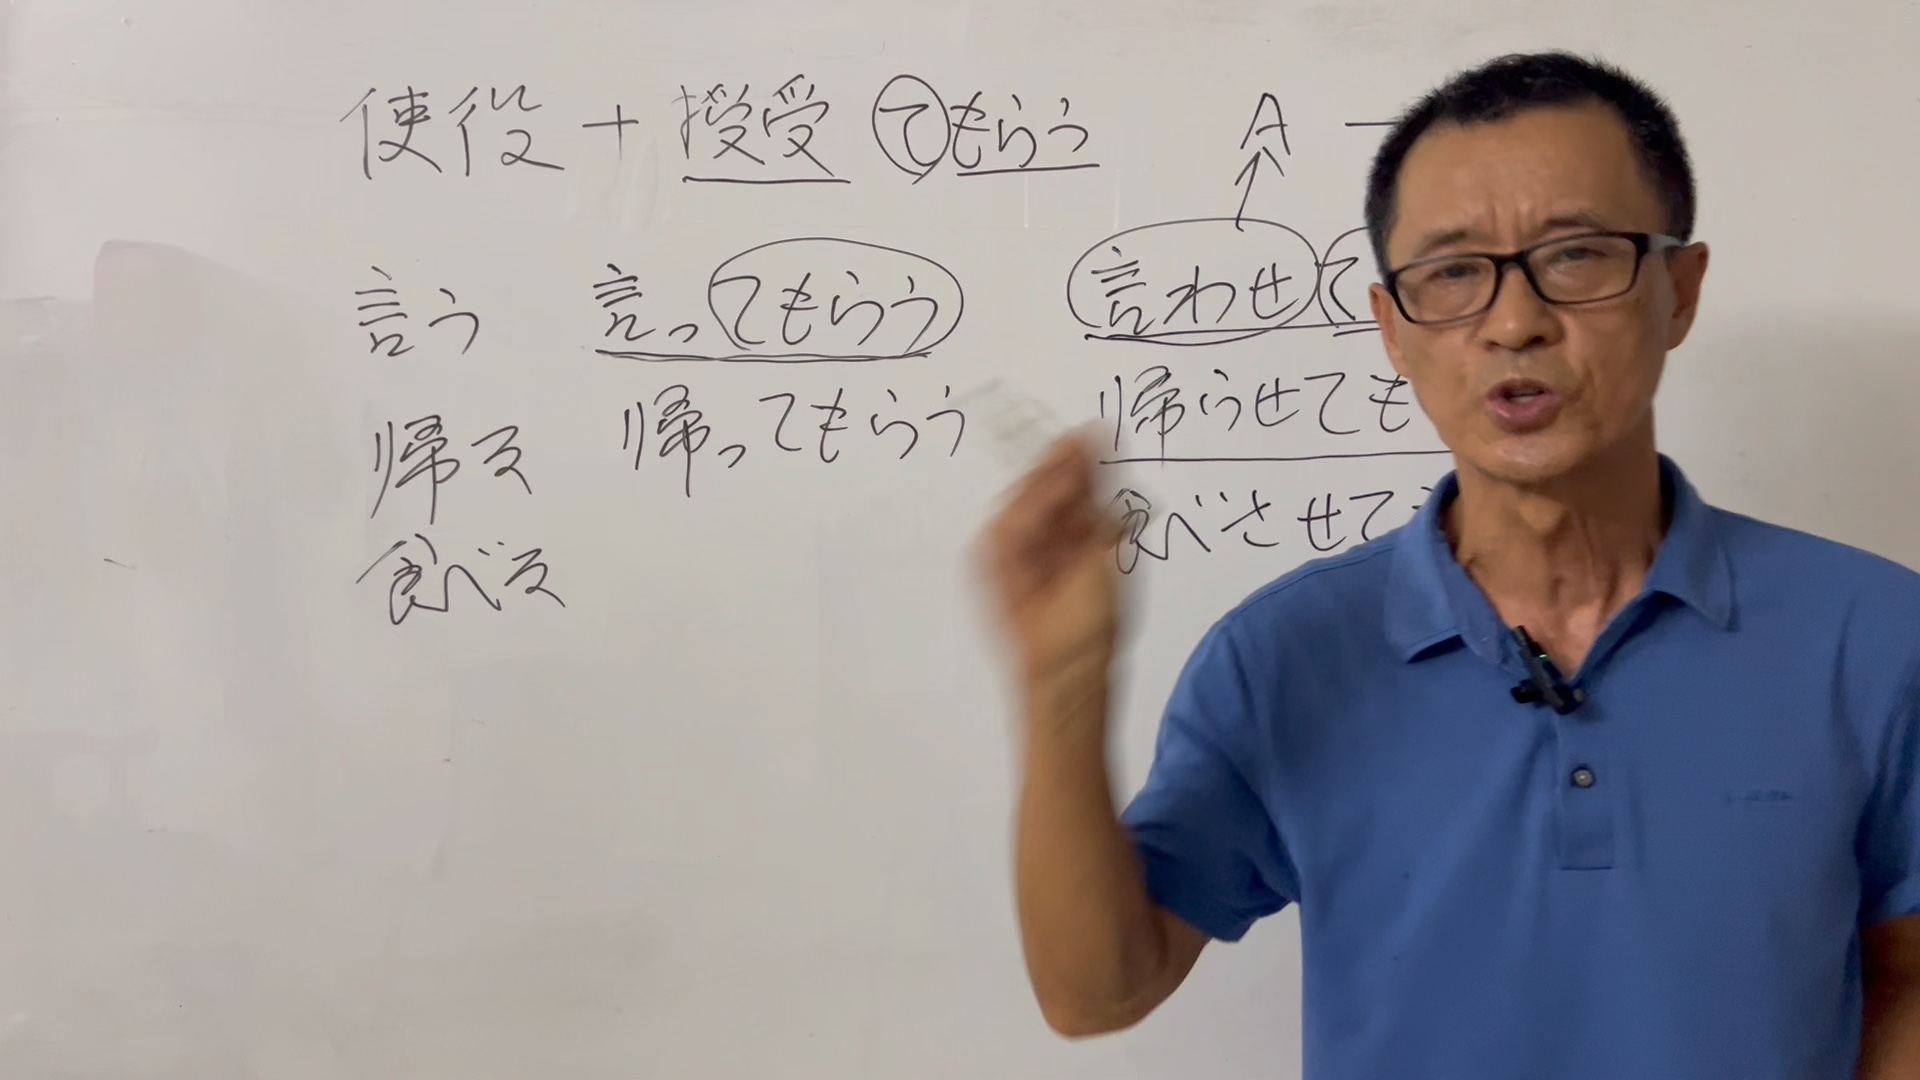 使役 + 授受 てもらう A —
言う 言ってもらう 言わせて
帰る 帰ってもらう 帰らせても
食べる 食べさせて